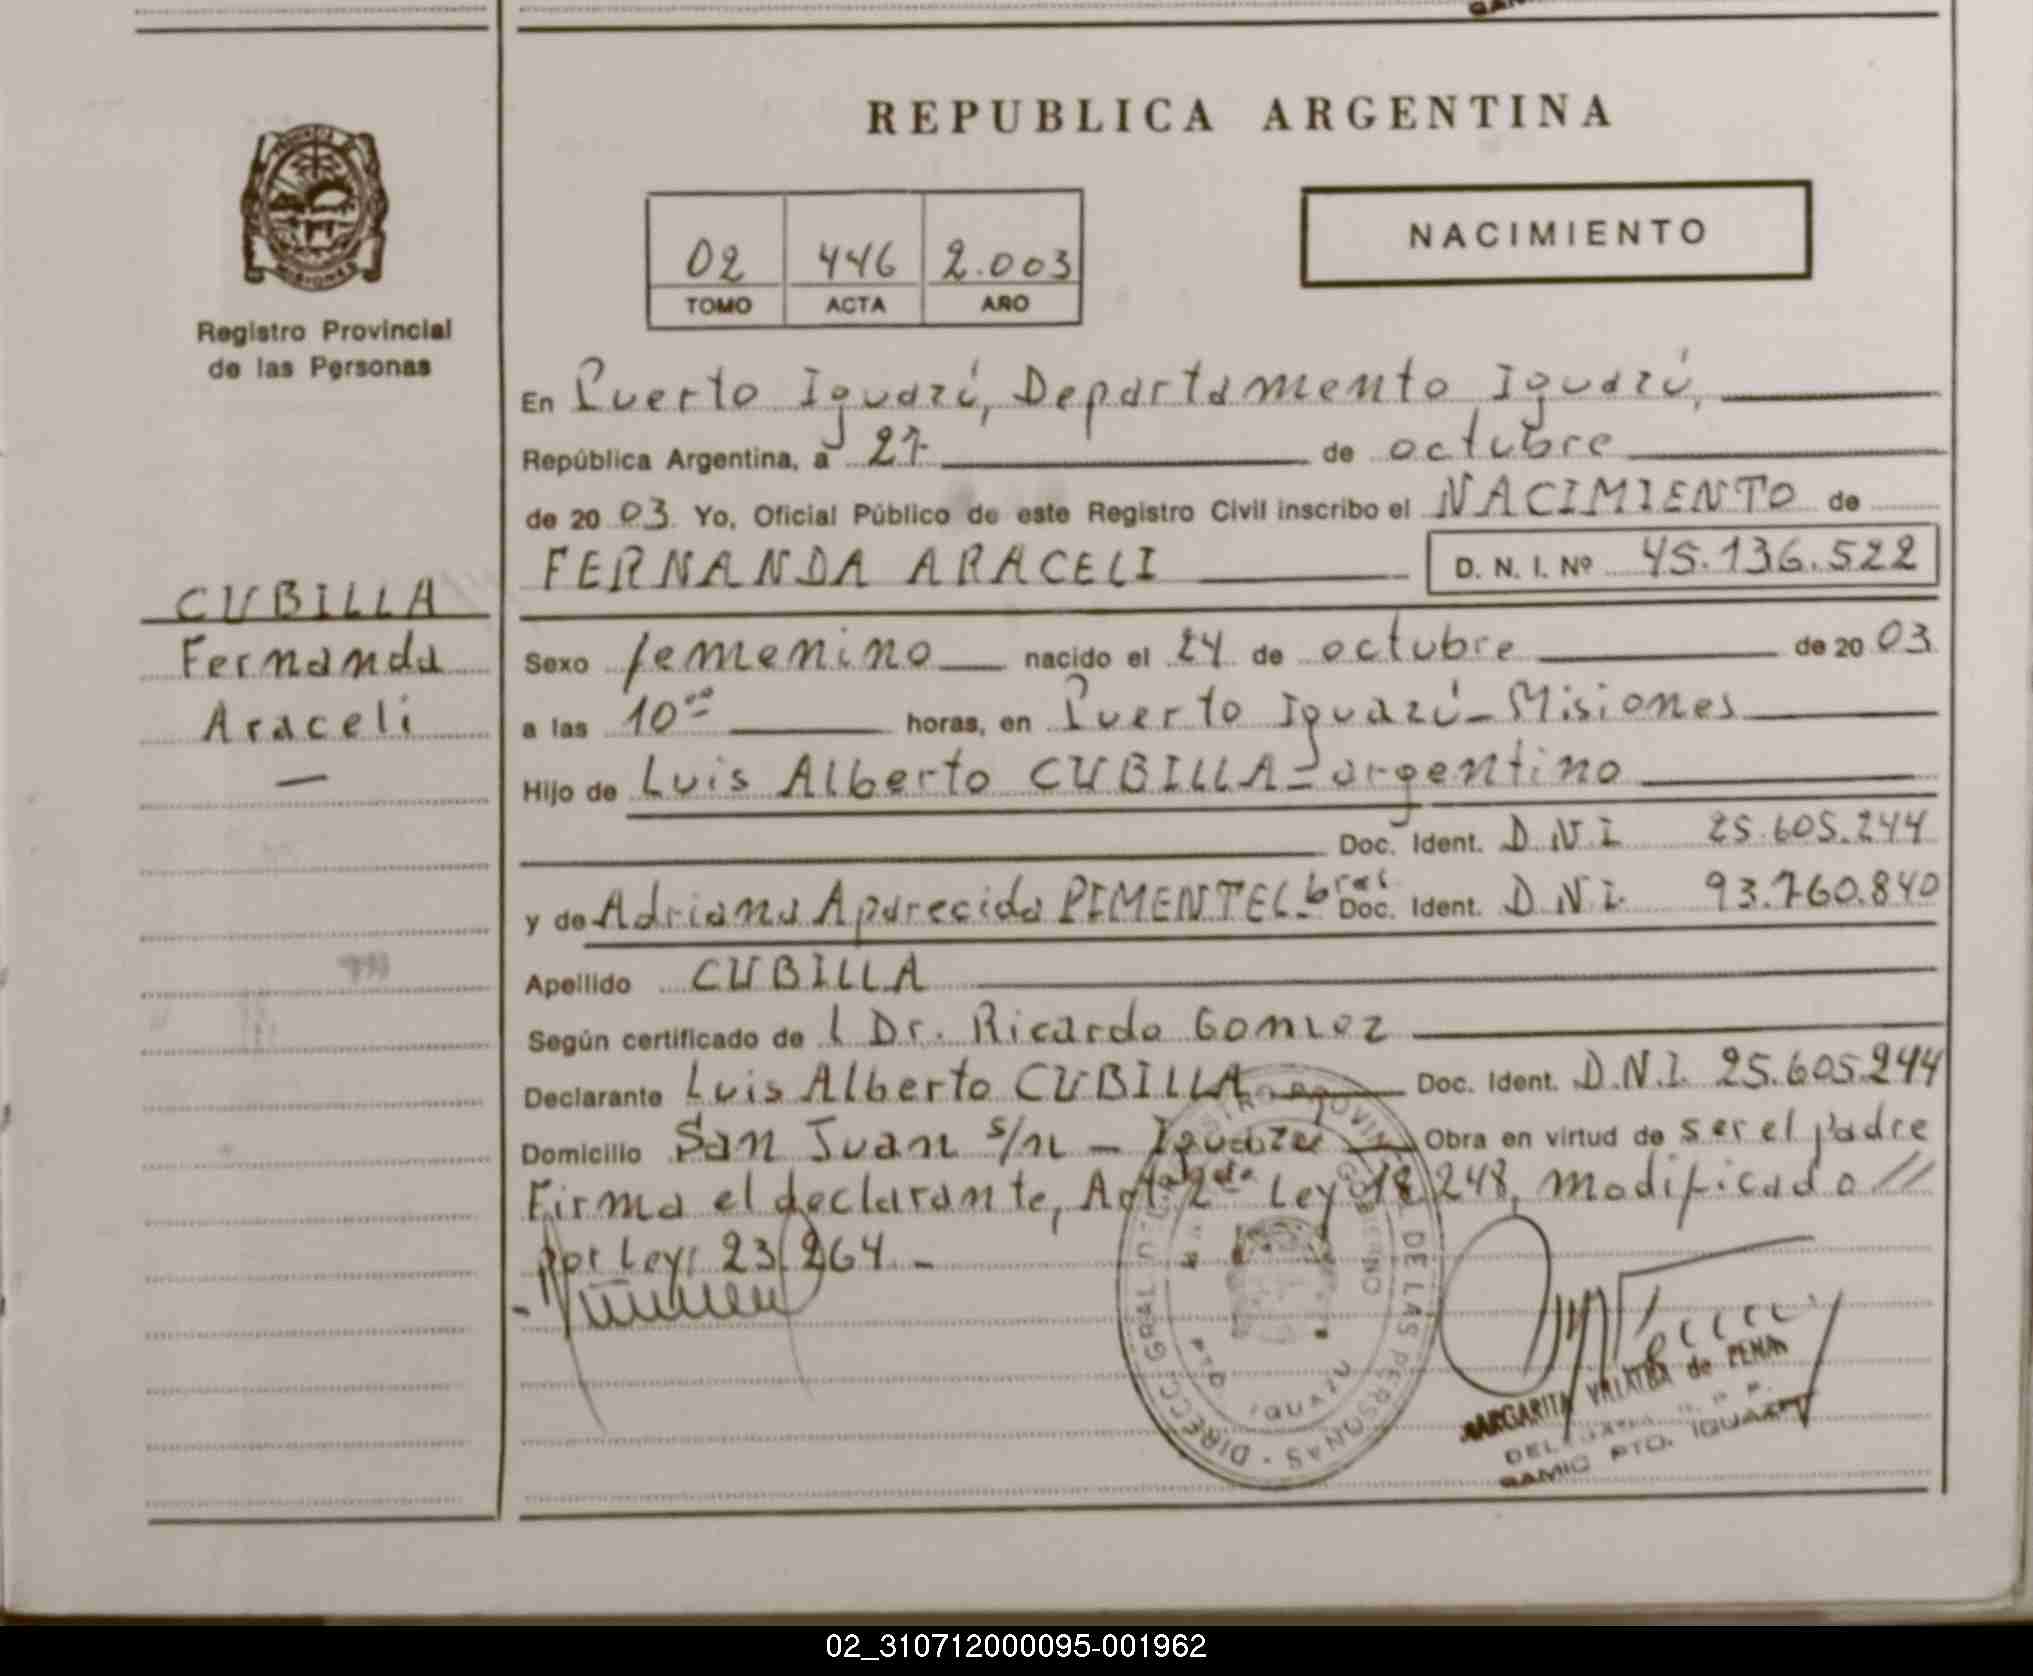 REPUBLICA ARGENTINA
PROVINCIA
MISIONES
Registro Provincial
de las Personas
02 446 2.003
TOMO ACTA AÑO
NACIMIENTO
En Puerto Iguazú, Departamento Iguazú,
República Argentina, a 27 de octubre
de 20 03 Yo, Oficial Público de este Registro Civil inscribo el NACIMIENTO de
FERNANDA ARACELI D. N. I. Nº 45.136.522
CUBILLA
Fernanda
Araceli
Sexo femenino nacido el 24 de octubre de 20 03
a las 10 00 horas, en Puerto Iguazú - Misiones
Hijo de Luis Alberto CUBILLA - argentino
Doc. Ident. D.N.I. 25.605.244
y de Adriana Aparecida PIMENTEL - bras. Doc. Ident. D.N.I. 93.760.840
Apellido CUBILLA
Según certificado de l Dr. Ricardo Gomez
Declarante Luis Alberto CUBILLA Doc. Ident. D.N.I. 25.605.244
Domicilio San Juan s/n - Iguazú Obra en virtud de ser el padre
Firma el declarante, Art. 2do. Ley 18.248, modificado //
por Ley: 23.264. -
DIRECC. GRAL. DE LAS PERSONAS
PTO IGUAZU
MARGARITA VILLALBA de PENA
SAMIC PTO. IGUAZU
02_310712000095-001962